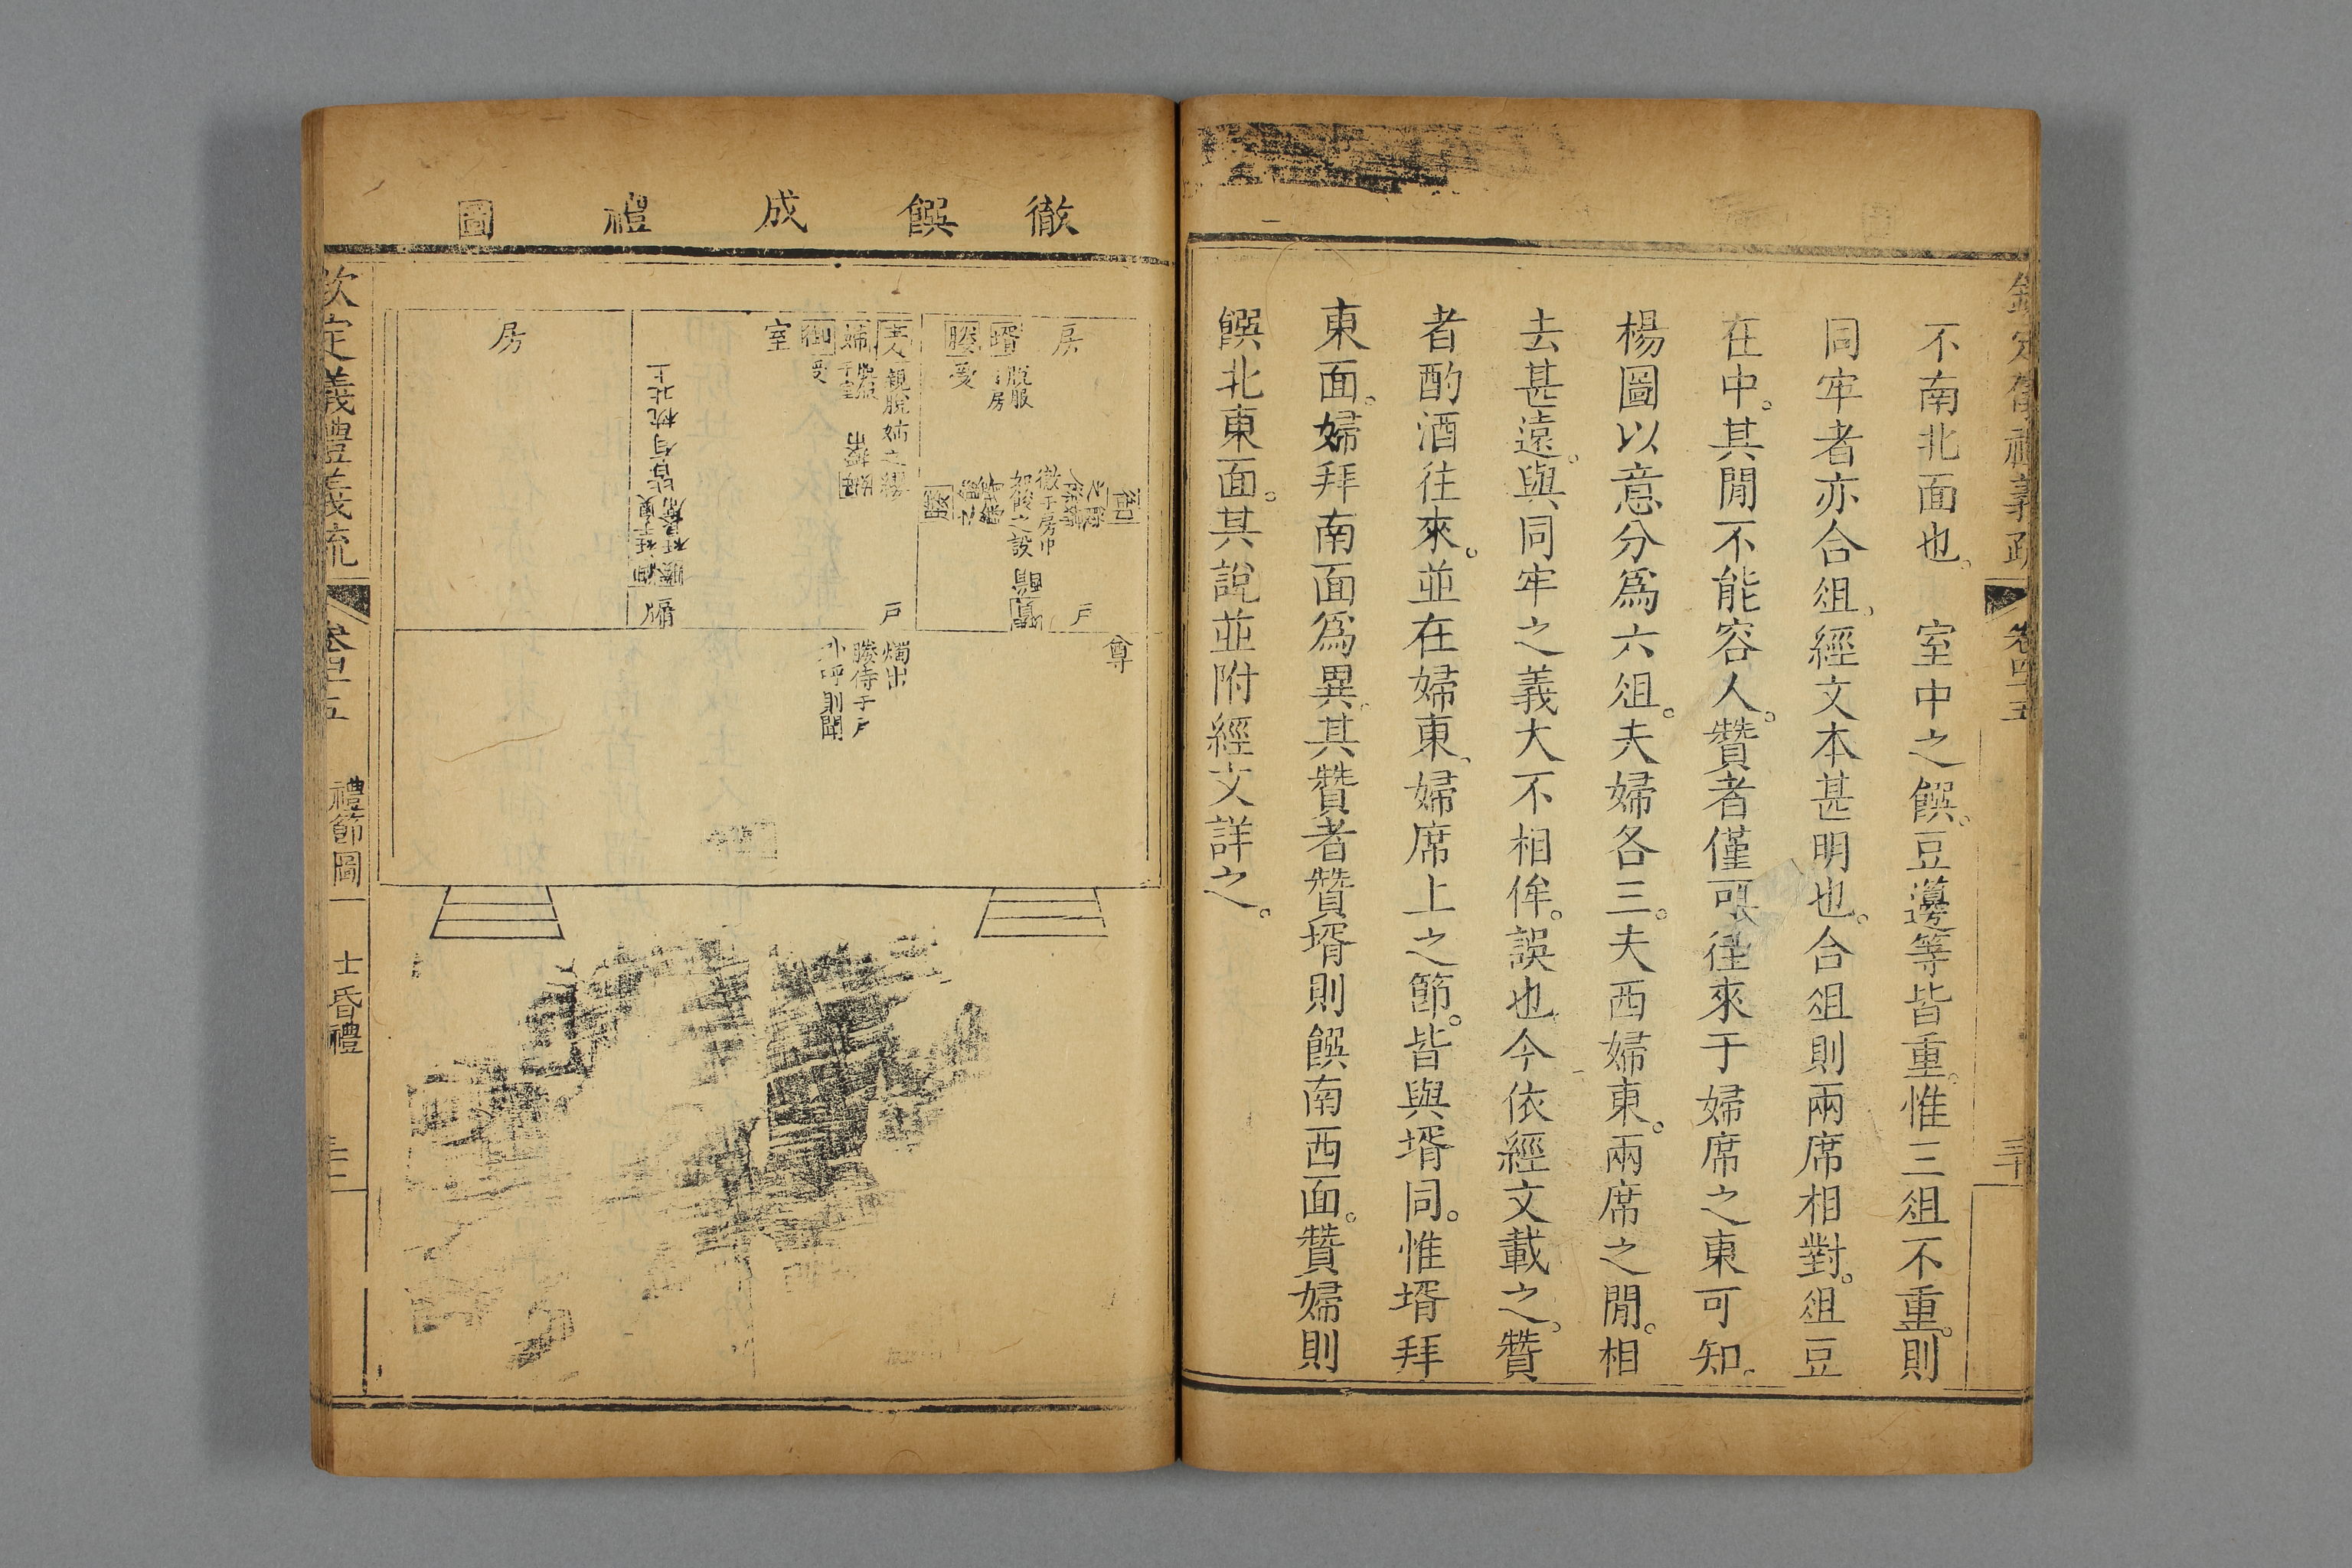 不南北面也。室中之饌。豆籩等皆重。惟三俎不重。則
同牢者亦合俎。經文本甚明也。合俎則兩席相對。俎豆
在中。其閒不能容人。贊者僅可往來于婦席之東可知。
楊圖以意分爲六俎。夫婦各三。夫西婦東。兩席之閒。相
去甚遠。與同牢之義大不相侔。誤也今依經文載之。贊
者酌酒往來。並在婦東、婦席上之節。皆與壻同。惟壻拜
東面。婦拜南面爲異。其贊者贊壻則饌南西面。贊婦則
饌北東面。其說並附經文詳之。
卷四十五
三十
徹饌成禮圖
房
壻
脫服
房
媵
受
姆
親脫婦之纓
婦
御
受
室
房
徹于房中
如設之設
尊
戶
戶
皆有枕北止
燭出
媵侍于戶
外呼則聞
尊
欽定義禮義疏
卷四十五
禮節圖
士昏禮